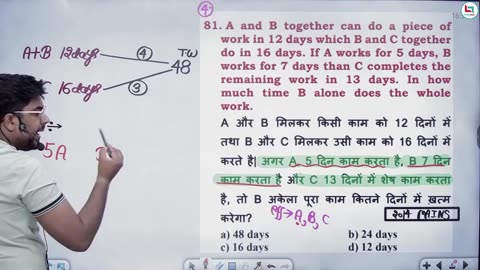 4
81. A and B together can do a piece of
work in 12 days which B and C together
do in 16 days. If A works for 5 days, B
works for 7 days than C completes the
remaining work in 13 days. In how
much time B alone does the whole
work.
A और B मिलकर किसी काम को 12 दिनों में
तथा B और C मिलकर उसी काम को 16 दिनों में
करते है। अगर A, 5 दिन काम करता है, B 7 दिन
काम करता है और C 13 दिनों में शेष काम करता
है, तो B अकेला पूरा काम कितने दिनों में ख़त्म
करेगा? eff → A, B, C 2014 MAINS
a) 48 days b) 24 days
c) 16 days d) 12 days
A+B 12 days 4 TW
48
C 16 days 3
5A